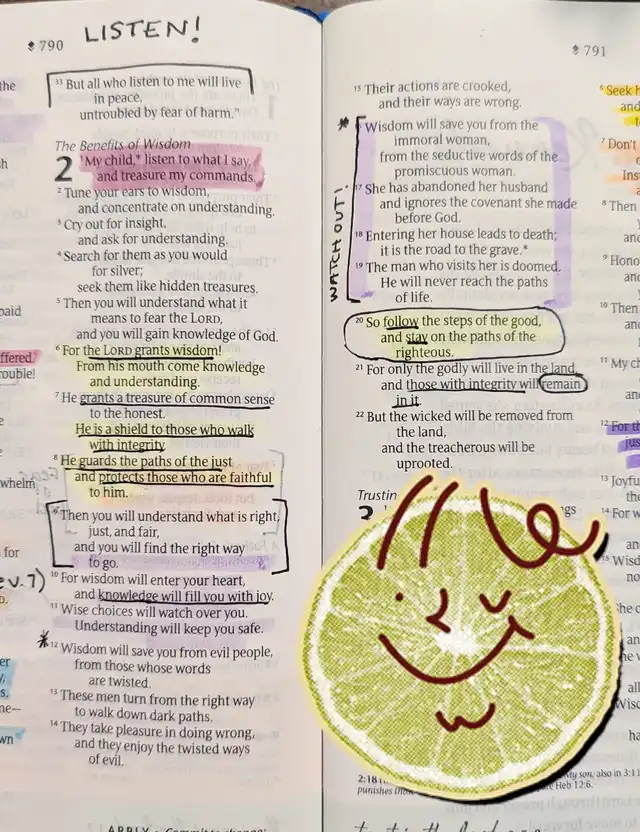 790
LISTEN!
33 But all who listen to me will live
in peace,
untroubled by fear of harm."
The Benefits of Wisdom
2 1 My child,* listen to what I say,
and treasure my commands.
2 Tune your ears to wisdom,
and concentrate on understanding.
3 Cry out for insight,
and ask for understanding.
4 Search for them as you would
for silver;
seek them like hidden treasures.
5 Then you will understand what it
means to fear the LORD,
and you will gain knowledge of God.
6 For the LORD grants wisdom!
From his mouth come knowledge
and understanding.
7 He grants a treasure of common sense
to the honest.
He is a shield to those who walk
with integrity.
8 He guards the paths of the just
and protects those who are faithful
to him.
9 Then you will understand what is right,
just, and fair,
and you will find the right way
to go.
10 For wisdom will enter your heart,
and knowledge will fill you with joy.
11 Wise choices will watch over you.
Understanding will keep you safe.
12 Wisdom will save you from evil people,
from those whose words
are twisted.
13 These men turn from the right way
to walk down dark paths.
14 They take pleasure in doing wrong,
and they enjoy the twisted ways
of evil.
791
15 Their actions are crooked,
and their ways are wrong.
WATCH OUT!
Wisdom will save you from the
immoral woman,
from the seductive words of the
promiscuous woman.
17 She has abandoned her husband
and ignores the covenant she made
before God.
18 Entering her house leads to death;
it is the road to the grave.*
19 The man who visits her is doomed.
He will never reach the paths
of life.
20 So follow the steps of the good,
and stay on the paths of the
righteous.
21 For only the godly will live in the land,
and those with integrity will remain
in it.
22 But the wicked will be removed from
the land,
and the treacherous will be
uprooted.
Trustin
2:18
punishes
My son; also in 3:11
Heb 12:6.
6 Seek h
and
7 Don't
Inst
8 Then
9 Hono
10 Then
11 My ch
12 For th
jus
13 Joyfu
14 For w